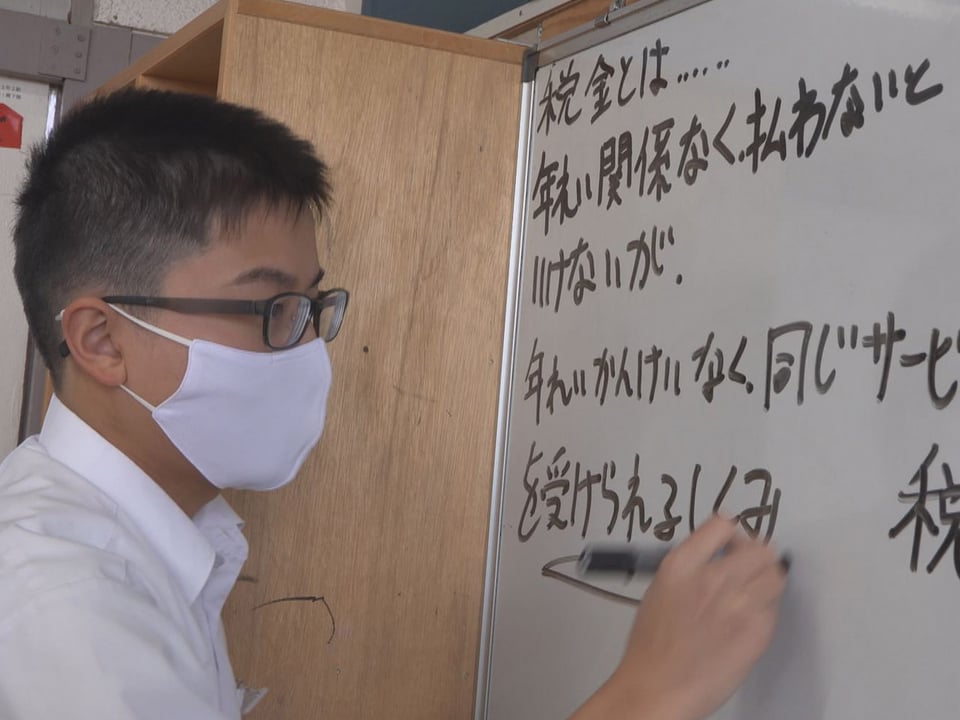 税金とは‥‥‥
年れい関係なく、払わないと
いけないが、
年れいかんけいなく、同じサービ
を受けられるしくみ
税